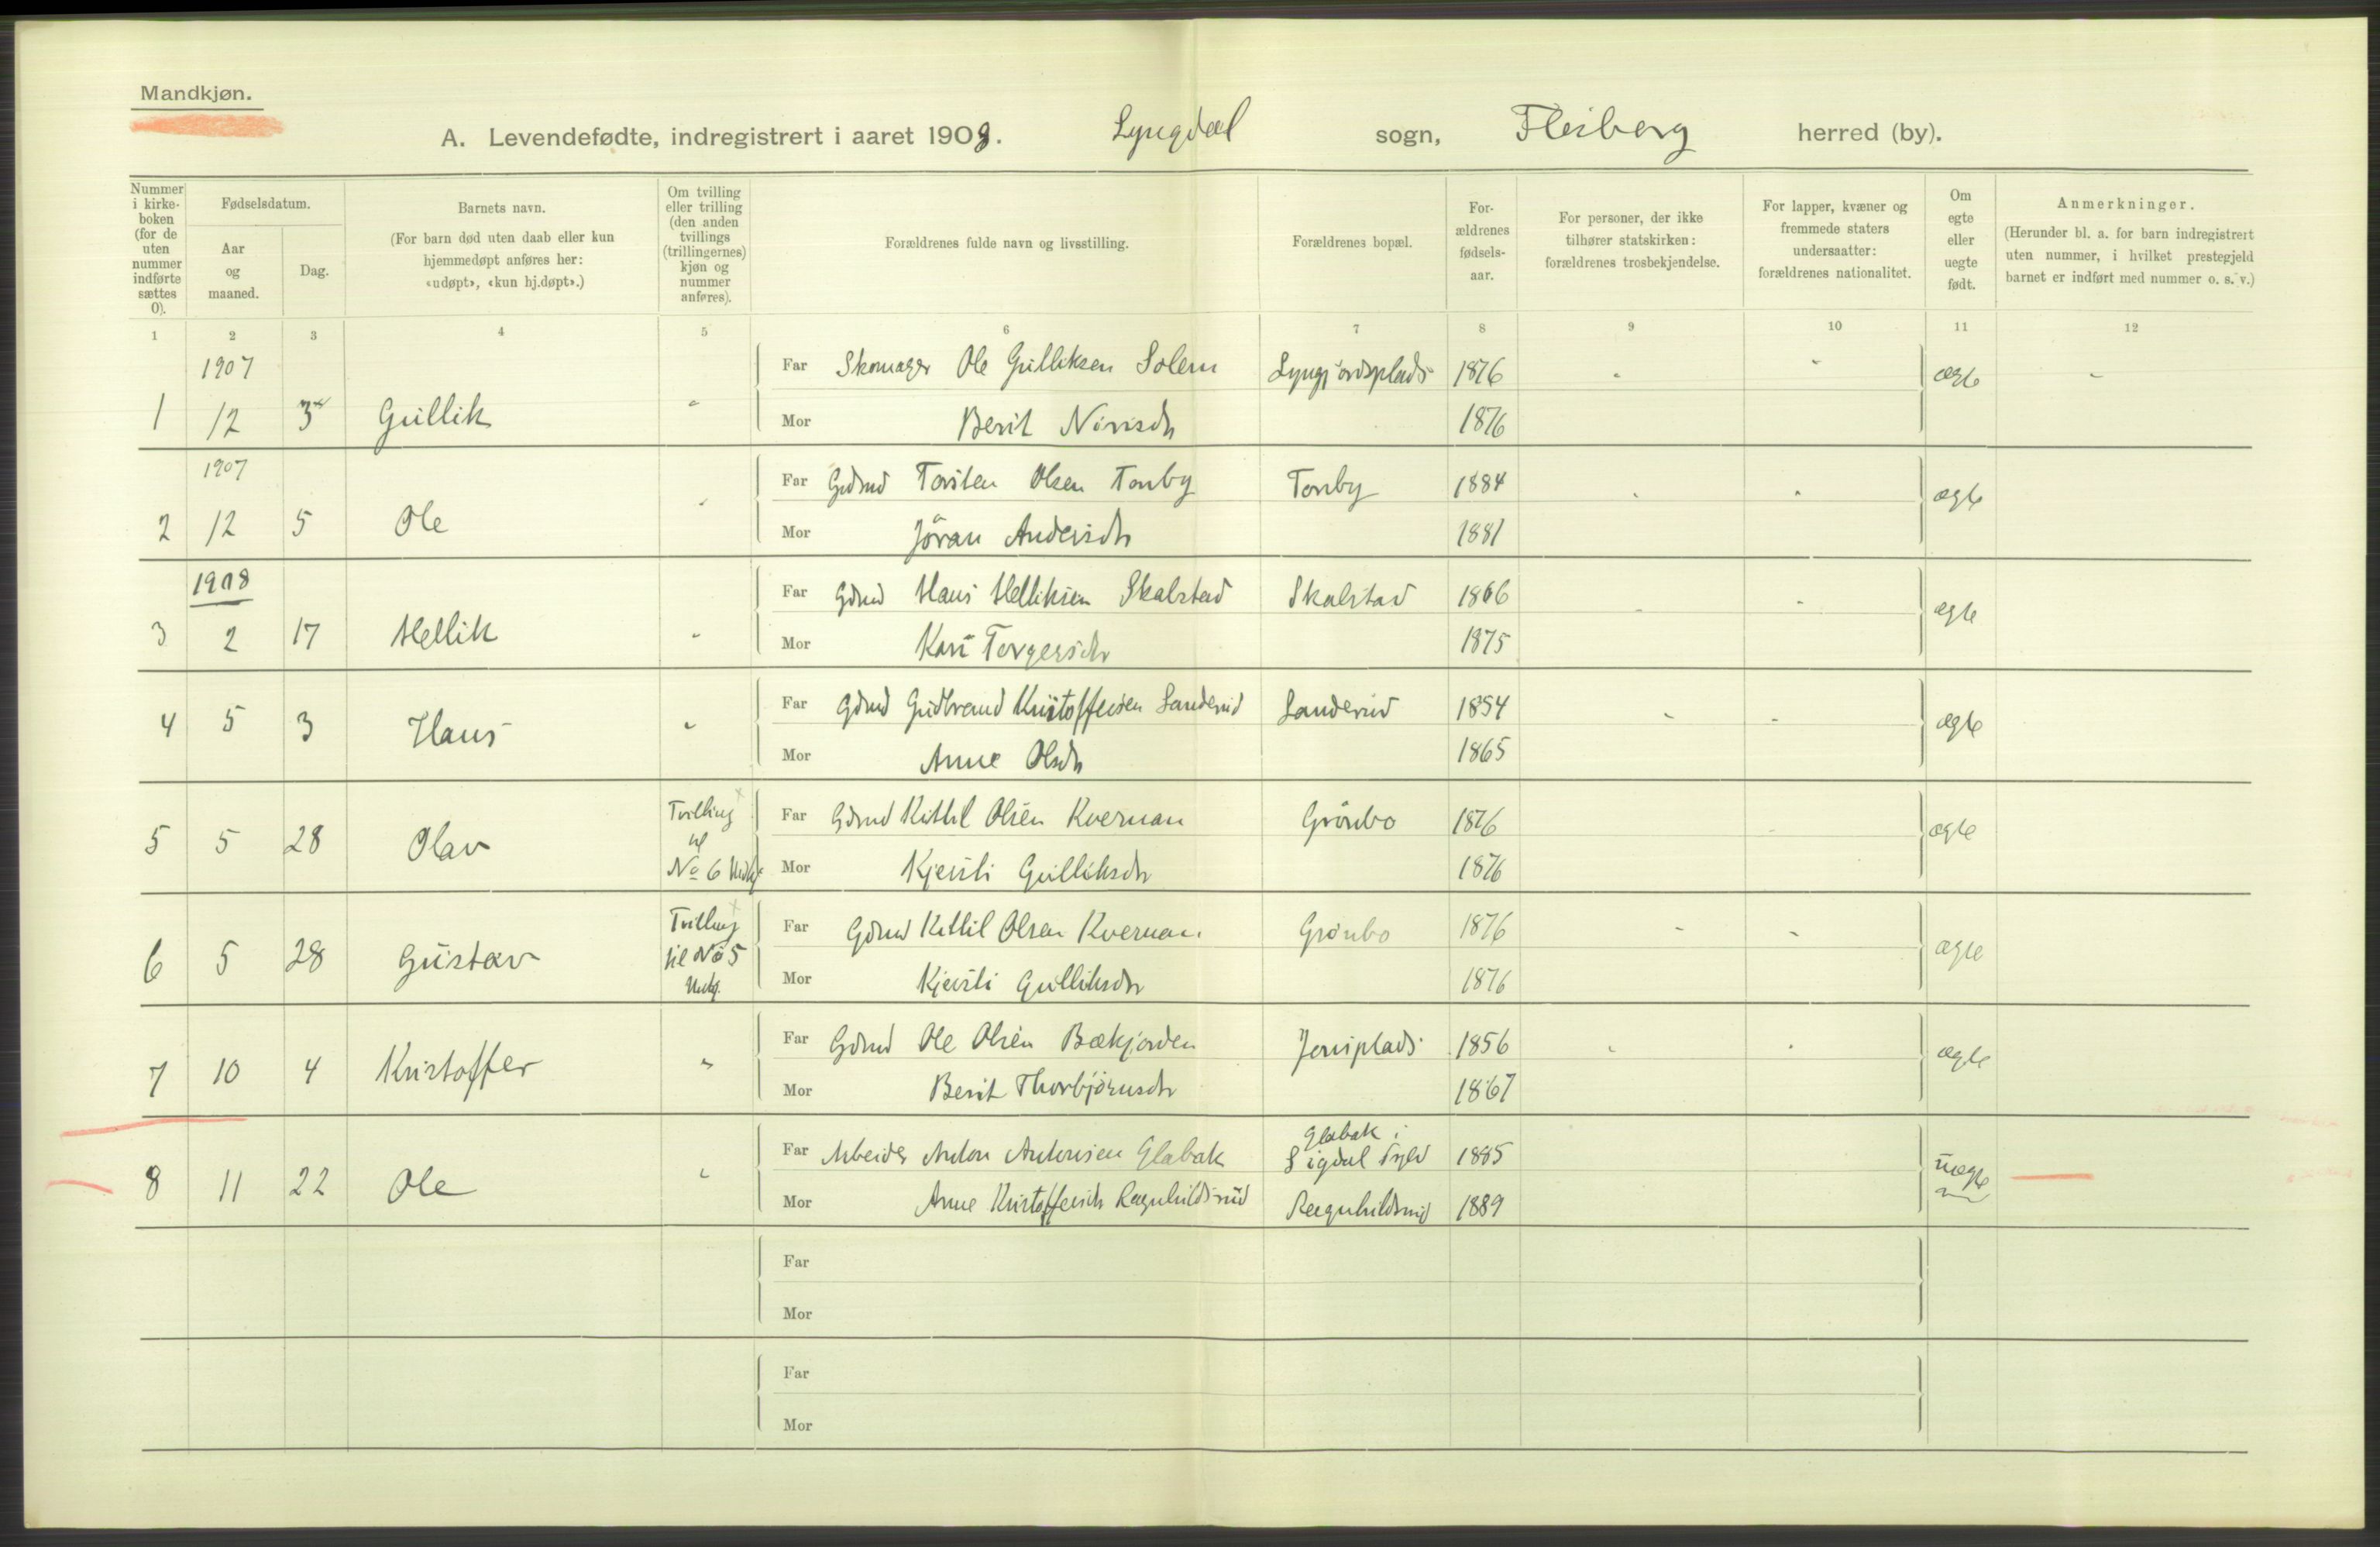 Mandkjøn.
A. Levendefødte, indregistrert i aaret 1908. Lyngdal sogn, Flesberg herred (by).
Nummer i kirke-boken (for de uten nummer indførte sættes 0).
Fødselsdatum.
Aar og maaned.
Dag.
Barnets navn.
(For barn død uten daab eller kun hjemmedøpt anføres her: «udøpt», «kun hj.døpt».)
Om tvilling eller trilling (den anden tvillings (trillingernes) kjøn og nummer anføres).
Forældrenes fulde navn og livsstilling.
Forældrenes bopæl.
For-ældrenes fødsels-aar.
For personer, der ikke tilhører statskirken: forældrenes trosbekjendelse.
For lapper, kvæner og fremmede staters undersaatter: forældrenes nationalitet.
Om egte eller uegte født.
Anmerkninger.
(Herunder bl. a. for barn indregistrert uten nummer, i hvilket prestegjeld barnet er indført med nummer o. s. v.)
1 2 3 4 5 6 7 8 9 10 11 12
1907
Far Skomager Ole Gulliksen Solem 1876 ægte
1 12 3 Gullik
Mor Berit 1876
1907
Far Gdmd Torsten Olsen Tonby Tonby 1884 ægte
2 12 5 Ole
Mor Jöran Andersdr 1881
1908
Far Gdmd Hans Helliksen Skalstad Skalstad 1866 ægte
3 2 17 Hellik
Mor Kari Torgersdr 1875
Far Gdmd Gudbrand Kristoffersen Sanderud Sanderud 1854 ægte
4 5 3 Hans
Mor Anne Olsdr 1865
Tvilling til No 6
Far Gdmd Kittil Olsen Kvernan Grönbo 1876 ægte
5 5 28 Olav
Mor Kjersti Gulliksdr 1876
Tvilling til No 5
Far Gdmd Kittil Olsen Kvernan Grönbo 1876 ægte
6 5 28 Gustav
Mor Kjersti Gulliksdr 1876
Far Gdmd Ole Olsen Bækjorden Jensplads 1856 ægte
7 10 4 Kristoffer
Mor Berit Thorbjörnsdr 1867
Glabak i
Far Arbeider Anton Antonsen Glabak Sigdal 1885 uægte
8 11 22 Ole
Mor Anne Kristoffersdr Ragnhildsrud Ragnhildsrud 1889
Far
Mor
Far
Mor